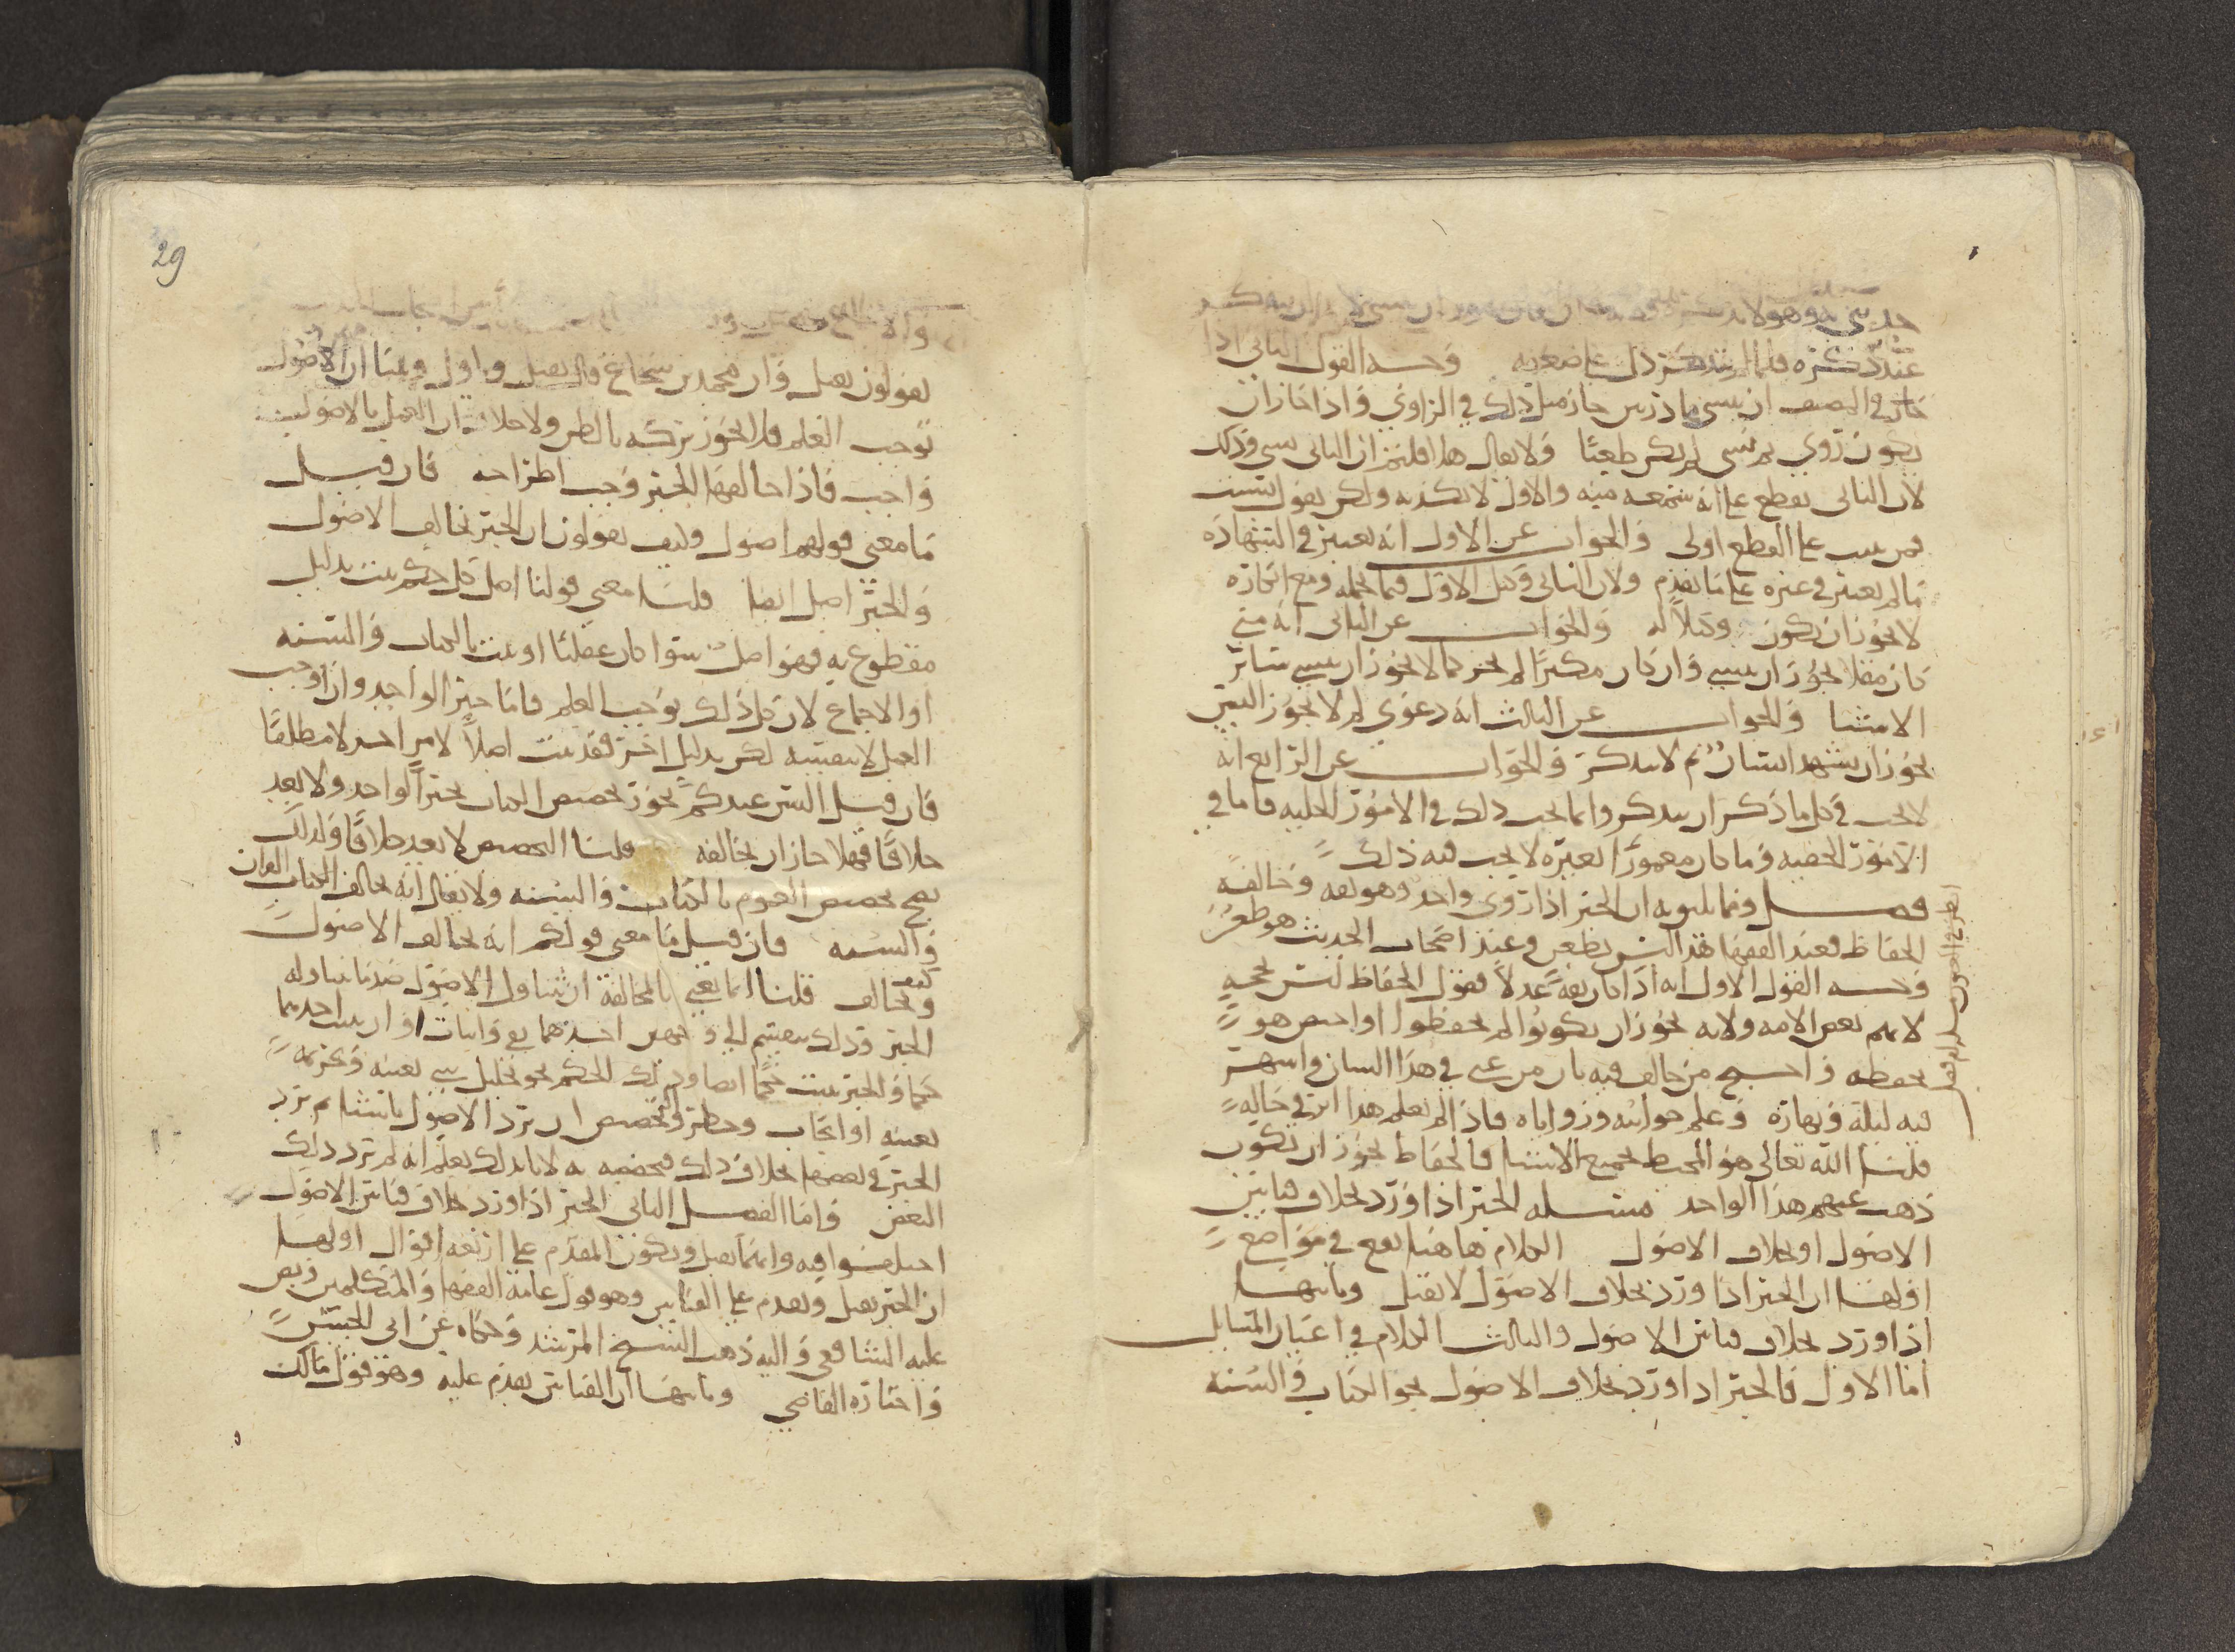 عند ذكره فلما لم يتذكر دل على ضعفه وجه القول الثاني اذا
جاز في المصنف ان ينسى ما درس جاز مثل ذلك في الراوي واذا جاز ان
يكون روى ثم نسي لم يكن طعنا ولا يقال هذا فليتم ان الثاني نسي وذلك
لان الثاني يقطع على انه سمعه منه والاول لا يكذبه ولكن يقول نسيت
فمن يثبت على القطع اولى والجواب عن الاول انه يعتبر في الشهادة
ما لم يعتبر في غيره على ما تقدم ولان الثاني وكيل الاول فيما تحمله ومع انكاره
لا يجوز ان يكون وكيلا له والجواب عن الثاني انه متى
كان مقلا يجوز ان ينسى وان كان مكثرا لم يجز كما لا يجوز ان ينسى سائر
الاشيا والجواب عن الثالث انه دعوى لم لا يجوز اليس
يجوز ان يشهد انسان ثم لا يتذكر والجواب عن الرابع انه
لا يجب في كل ما ذكر ان يتذكر وانما يجب ذلك في الامور الجلية فاما في
الامور الخفية وما كان معمورا بغيره لا يجب فيه ذلك
فصل ومما يلي به ان الخبر اذا روى واحد وهو ثقة وخالفه
الحفاظ فعند الفقها هذا ليس بطعن وعند اصحاب الحديث هو طعن
وجه القول الاول انه اذا كان ثقة عدلا فقول الحفاظ ليس بحجة
لانهم بعض الامة ولانه يجوز ان يكونوا لم يحفظوا او اختص هو
بحفظه واحتج من خالف فيه بان من عني في هذا الشان واسهر
فيه ليله ونهاره وعلم جوانبه وزواياه فاذا لم يعلم هذا اثر في حاله
قلنا الله تعالى هو المحيط بجميع الاشيا فالحفاظ يجوز ان يكون
ذهب عنهم هذا الواحد مسئلة الخبر اذا ورد بخلاف قياس
الاصول او بخلاف الاصول الكلام هاهنا يقع في مواضع
اولها ان الخبر اذا ورد بخلاف الاصول لا يقبل وثانيها
اذا ورد بخلاف قياس الاصول والثالث الكلام في اعيان المسايل
اما الاول فالخبر اذا ورد بخلاف الاصول نحو الكتاب والسنة
29
يقولون يقبل وان محمد بن شجاع قال يقبل ويأول وعندنا ان الاصول
توجب العلم فلا يجوز تركه بالظن ولا خلاف ان العمل بالاصول
واجب فاذا خالفها الخبر وجب اطراحه فان قيل
ما معنى قولهم اصول وكيف يقولون ان الخبر يخالف الاصول
والخبر اصل ايضا قلنا معنى قولنا اصل كل حكم يثبت بدليل
مقطوع به فهو اصل سوا كان عقليا او يثبت بالكتاب والسنه
او الاجماع لان كل ذلك يوجب العلم فاما خبر الواحد وان اوجب
العمل لا بنفسه لكن بدليل اخر فقد يثبت اصلا لامر احد لا مطلقا
فان قيل اليس عندكم يجوز تخصيص الكتاب بخبر الواحد ولا يعد
خلافا فهلا جاز ان يخالفه قلنا التخصيص لا يعد خلافا وكذلك
يصح تخصيص العموم بالكتاب والسنه ولا يقال انه يخالف الكتاب القران
والسنه فان قيل ما معنى قولكم انه يخالف الاصول
وكيف يخالف قلنا انما نعني بالمخالفة ان يتناول الاصول ضد ما يتناوله
الخبر وذلك ينقسم الى وجهين احدهما نفي واثبات او ان يثبت احدهما
حكما والخبر يثبت حكما ايضا وذلك الحكم نحو تحليل شي بعينه وتحريمه
بعينه او ايجاب وحظر والتخصيص ان ترد الاصول باشيا ثم ترد
الخبر في بعضها بخلاف ذلك فتخصيصه به لانا بذلك نعلم انه لم ترد ذلك
البعض واما الفصل الثاني الخبر اذا ورد بخلاف قياس الاصول
اختلفوا فيه وايهما يقبل ويكون المقدم على اربعة اقوال اولها
ان الخبر يقبل ويقدم على القياس وهو قول عامة الفقها والمتكلمين ونص
عليه الشافعي واليه ذهب الشيخ المرشد وحكاه عن ابي الحسن
واختاره القاضي وثانيها ان القياس يقدم عليه وهو قول مالك